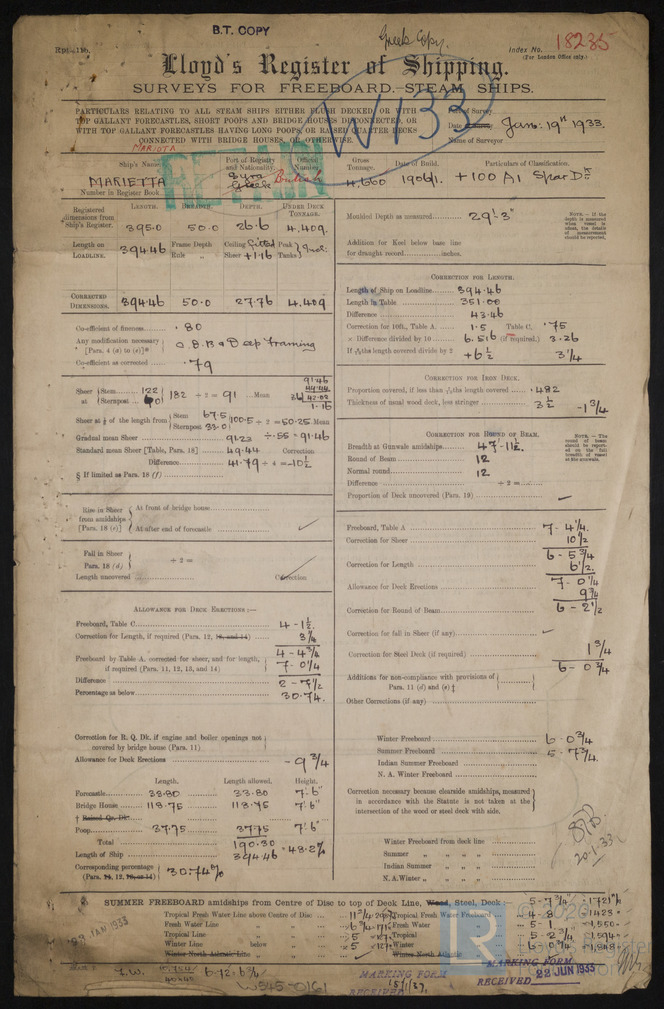 B.T. COPY
Greek Copy.
Index No. 18235
(For London Office only.)
Lloyd's Register of Shipping.
SURVEYS FOR FREEBOARD.—STEAM SHIPS.
W133
PARTICULARS RELATING TO ALL STEAM SHIPS EITHER FLUSH DECKED, OR WITH
TOP GALLANT FORECASTLES, SHORT POOPS AND BRIDGE HOUSES DISCONNECTED, OR
WITH TOP GALLANT FORECASTLES HAVING LONG POOPS, OR RAISED QUARTER DECKS
CONNECTED WITH BRIDGE HOUSES, OR OTHERWISE.
Port of Survey
Date Jan: 19th 1933.
Name of Surveyor
MARIOTA
Ship's Name
MARIETTA
Number in Register Book
Port of Registry and Nationality.
Syra
Greek British
Official Number.
Gross Tonnage.
4,660
Date of Build.
1906/1.
Particulars of Classification.
+100 A1 Spar Dk
Registered dimensions from Ship's Register.
LENGTH. BREADTH. DEPTH. UNDER DECK TONNAGE.
395.0 50.0 26.6 4,409.
Length on LOADLINE. 394.46
Frame Depth Rule „
Ceiling fitted
Sheer +1.16
Peak Tanks
CORRECTED DIMENSIONS. 394.46 50.0 27.76 4,409
Moulded Depth as measured 29'-3"
Addition for Keel below base line
for draught record inches.
NOTE.—If the depth is measured when vessel is afloat, the details of measurement should be reported.
CORRECTION FOR LENGTH.
Length of Ship on Loadline 394.46
Length in Table 351.00
Difference 43.46
Correction for 10ft., Table A. 1.5 Table C. .75
× Difference divided by 10 6.516 (if required.) 3.26
If 6/10ths length covered divide by 2 +6½ 3¼
Co-efficient of fineness .80
Any modification necessary
[Para. 4 (d) to (e)]* O.D.B & Deep Framing
Co-efficient as corrected .79
CORRECTION FOR IRON DECK.
Proportion covered, if less than 7/10ths length covered .482
Thickness of usual wood deck, less stringer 3½ -1¾
Sheer at Stem 122 Sternpost 60 182 ÷ 2 = 91 Mean
Sheer at ⅛ of the length from Stem 67.5 Sternpost 33.0 100.5 ÷ 2 = 50.25 Mean
Gradual mean Sheer 91.23 ÷ .55 = 91.46
Standard mean Sheer [Table, Para. 18] 49.44 Correction
Difference 41.79 ÷ 4 = -10½
§ If limited as Para. 18 (f)
CORRECTION FOR ROUND OF BEAM.
Breadth at Gunwale amidships 47'-11½.
Round of Beam 12
Normal round 12
Difference ÷ 2 =
Proportion of Deck uncovered (Para. 19)
Rise in Sheer from amidships [Para. 18 (e)]
At front of bridge house
At after end of forecastle
Fall in Sheer
Para. 18 (d) ÷ 2 =
Length uncovered Correction
Freeboard, Table A 7 - 4¼.
Correction for Sheer 10½
6 - 5¾
Correction for Length 6½.
7 - 0¼
Allowance for Deck Erections 9¾
6 - 2½
Correction for Round of Beam
Correction for fall in Sheer (if any)
Correction for Steel Deck (if required) 1¾
6 - 0¾
Additions for non-compliance with provisions of
Para. 11 (d) and (e) †
Other Corrections (if any)
ALLOWANCE FOR DECK ERECTIONS :—
Freeboard, Table C 4 - 1½.
Correction for Length, if required (Para. 12, 13, and 14) 3¼
4 - 4¾
Freeboard by Table A. corrected for sheer, and for length,
if required (Para. 11, 12, 13, and 14) 7 - 0¼
Difference 2 - 7½
Percentage as below 30.74.
Correction for R. Q. Dk. if engine and boiler openings not
covered by bridge house (Para. 11)
Allowance for Deck Erections - 9¾
Length. Length allowed. Height.
Forecastle 33.80 33.80 7'-6"
Bridge House 118.75 118.75 7'-6"
† Raised Qr. Dk.
Poop 37.75 37.75 7'-6"
Total 190.30
Length of Ship 394.46 = 48.2%
Corresponding percentage
(Para. 11, 12, 13, or 14) 30.74%
Winter Freeboard 6 - 0¾
Summer Freeboard 5 - 7¾.
Indian Summer Freeboard
N. A. Winter Freeboard
Correction necessary because clearside amidships, measured
in accordance with the Statute is not taken at the
intersection of the wood or steel deck with side.
Winter Freeboard from deck line
Summer „ „ „
Indian Summer „ „
N. A. Winter „ „
20.1.33
SUMMER FREEBOARD amidships from Centre of Disc to top of Deck Line, Wood, Steel, Deck: 5 - 7¾
Tropical Fresh Water Line above Centre of Disc
Fresh Water Line „ „
Tropical Line „ „
Winter Line below „
Winter North Atlantic Line „
Tropical Fresh Water Freeboard 4 - 8
Fresh Water „ 5 - 1
Tropical „ 5 - 2¾
Winter „ 6 - 0¾
Winter North Atlantic „
JAN 1933
W345-0161
MARKING FORM
RECEIVED
MARKING FORM
RECEIVED 22 JUN 1933
© 2020
Lloyd's Register
Foundation